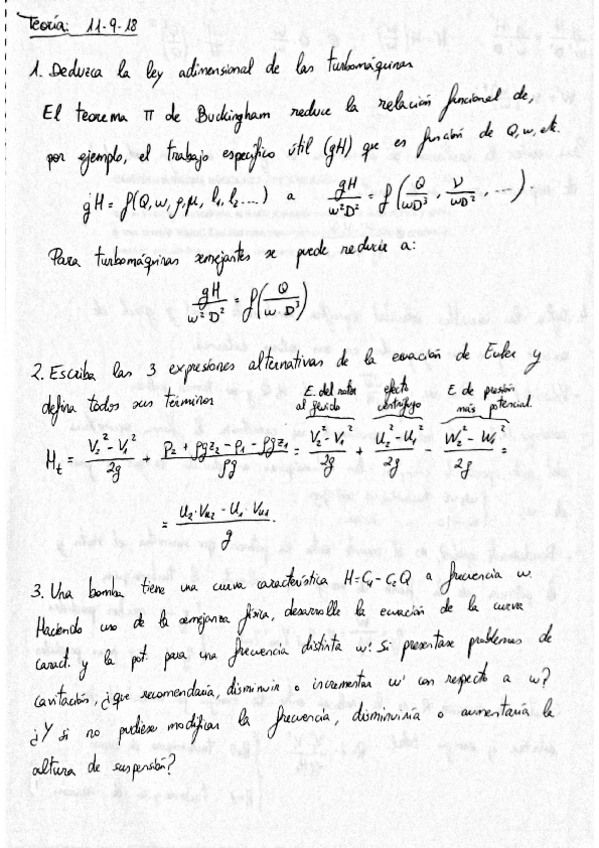 Teoría: 11-9-18
1. Deduzca la ley adimensional de las turbomáquinas
El teorema π de Buckingham reduce la relación funcional de,
por ejemplo, el trabajo específico útil (gH) que es función de Q, w, etc.
gH = f(Q, w, ρ, μ, l₁, l₂ ...) a gH/w²D² = f(Q/wD³, ν/wD², ...).
Para turbomáquinas semejantes se puede reducir a:
gH/w²D² = f(Q/w·D³)
2. Escriba las 3 expresiones alternativas de la ecuación de Euler y
defina todos sus términos
E. del rotor al fluido efecto centrífugo E. de presión más potencial
H_t = (V₂² - V₁²)/2g + (p₂ + ρgz₂ - p₁ - ρgz₁)/ρg = (V₂² - V₁²)/2g + (U₂² - U₁²)/2g - (W₂² - W₁²)/2g =
= (U₂·V_u2 - U₁·V_u1)/g.
3. Una bomba tiene una curva característica H=C₁-C₂Q a frecuencia w.
Haciendo uso de la semejanza física, desarrolle la ecuación de la curva
caract. y la pot. para una frecuencia distinta w'. Si presentase problemas de
cavitación, ¿que recomendaría, disminuir o incrementar w' con respecto a w?
¿Y si no pudiese modificar la frecuencia, disminuiría o aumentaría la
altura de suspensión?